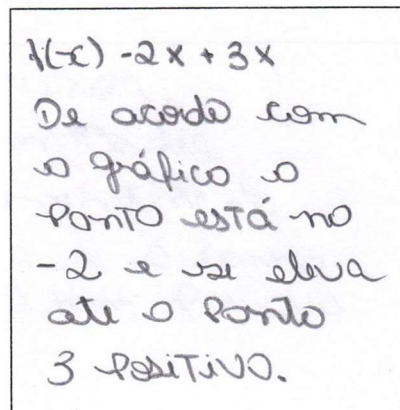 f(x) -2x + 3x
De acordo com
o gráfico o
ponto está no
-2 e se eleva
ate o ponto
3 positivo.